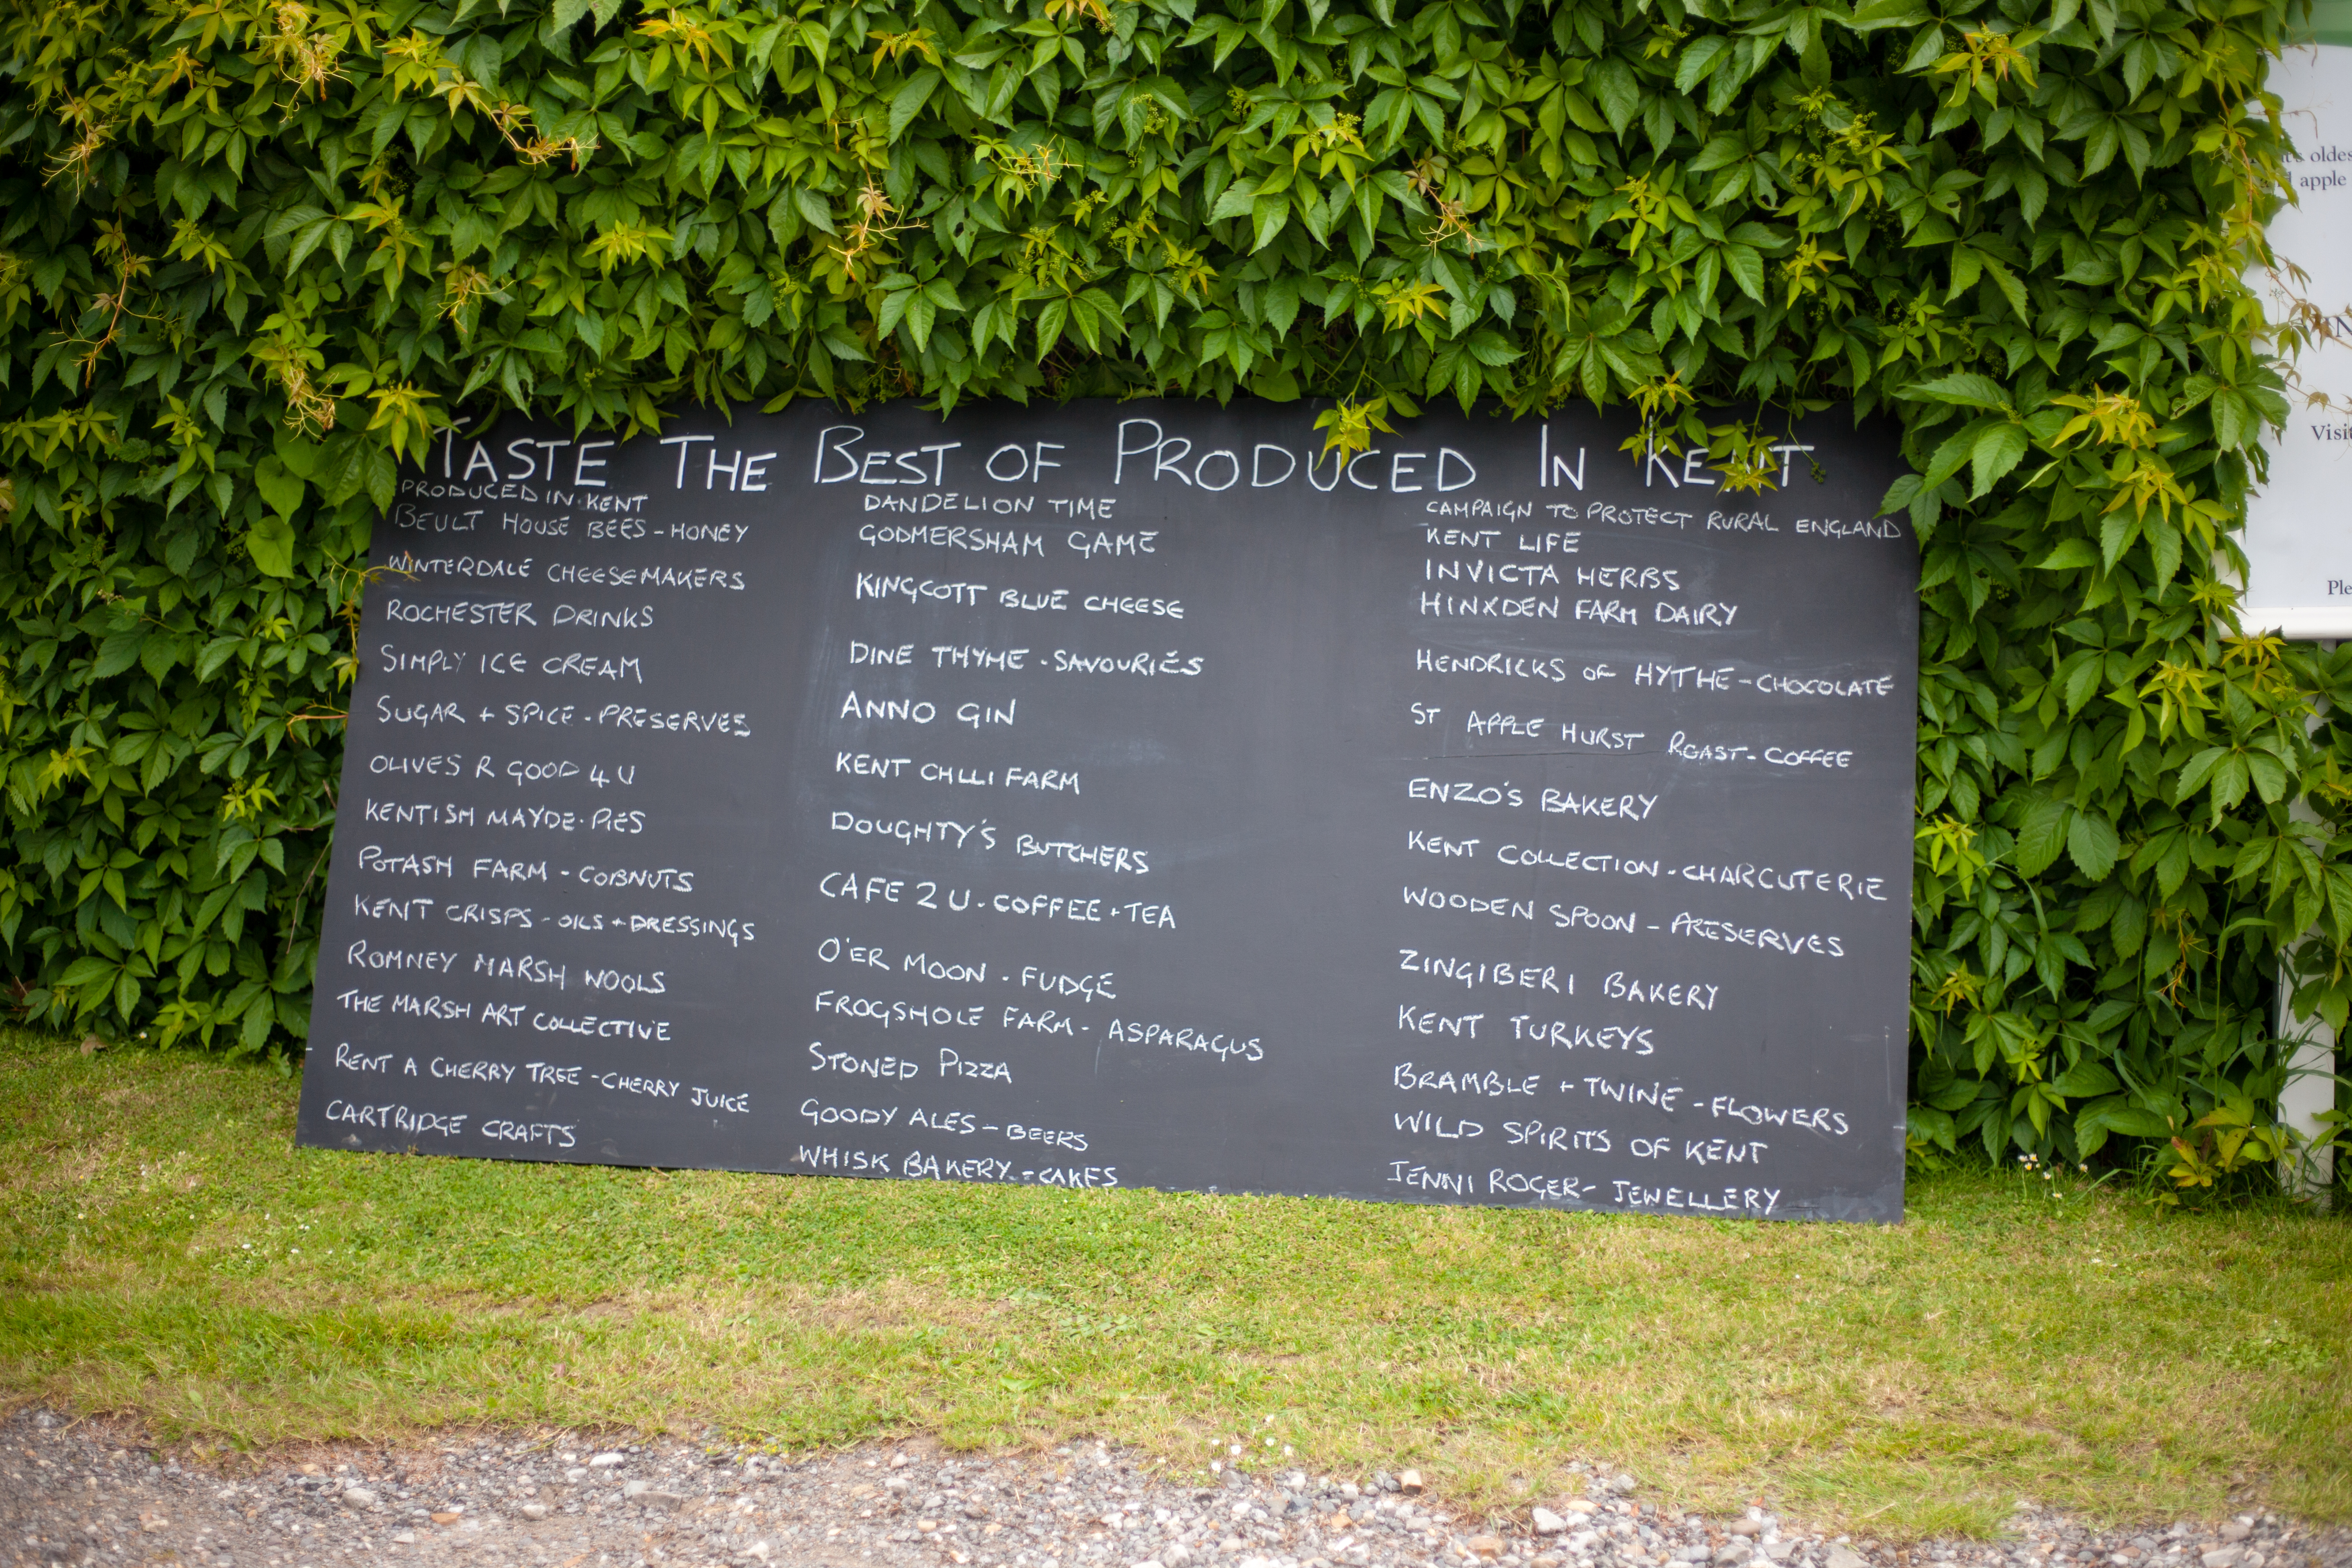 TASTE THE BEST OF PRODUCED IN KENT
PRODUCED IN KENT
BEULT HOUSE BEES - HONEY
WINTERDALE CHEESEMAKERS
ROCHESTER DRINKS
SIMPLY ICE CREAM
SUGAR + SPICE - PRESERVES
OLIVES R GOOD 4 U
KENTISH MAYDE - PIES
POTASH FARM - COBNUTS
KENT CRISPS - OILS + DRESSINGS
ROMNEY MARSH WOOLS
THE MARSH ART COLLECTIVE
RENT A CHERRY TREE - CHERRY JUICE
CARTRIDGE CRAFTS
DANDELION TIME
GODMERSHAM GAME
KINGCOTT BLUE CHEESE
DINE THYME - SAVOURIES
ANNO GIN
KENT CHLLI FARM
DOUGHTY'S BUTCHERS
CAFE 2 U - COFFEE + TEA
O'ER MOON - FUDGE
FROGSHOLE FARM - ASPARAGUS
STONED PIZZA
GOODY ALES - BEERS
WHISK BAKERY - CAKES
CAMPAIGN TO PROTECT RURAL ENGLAND
KENT LIFE
INVICTA HERBS
HINXDEN FARM DAIRY
HENDRICKS OF HYTHE - CHOCOLATE
ST APPLE HURST ROAST - COFFEE
ENZO'S BAKERY
KENT COLLECTION - CHARCUTERIE
WOODEN SPOON - PRESERVES
ZINGIBERI BAKERY
KENT TURKEYS
BRAMBLE + TWINE - FLOWERS
WILD SPIRITS OF KENT
JENNI ROGER - JEWELLERY
apple